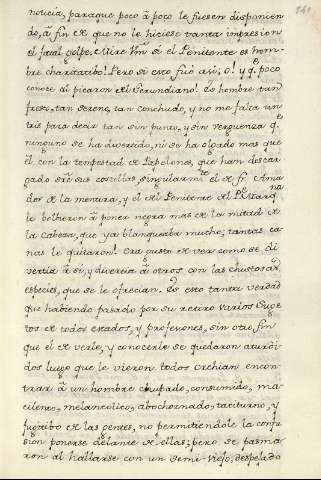 141
noticia, paraque poco â poco le fuesen disponien
do, â fin de que no le hiciese tanta impresion
el fatal golpe. Mire Vm si el Penitente es hom-
bre charitatibo! Pero si esto fuè asi; ô! y q.e poco
conoce al picaron del Gerundiano! Es hombre tan
fresco, tan sereno, tan conchudo, y no me falta un
tris para decir tan sin punto, y sin verguenza q.e
ninguno se ha divertido, ni se ha olgado mas que
èl con la tempestad de Papelones, que han descar
gado sre sus costillas, singularm.te el de fr. Ama
dor de la mentira, y el del Penitente del P. Marq.na
le bolberan â poner negra mas de la mitad de
la Cabeza, que ya blanqueaba mucho; tantas ca-
nas le quitaron! Era gusto de ver como se di-
vertia â si, y divertia â otros con las chistosas
especies, que se le ofrecian. Es esto tanta verdad
que habiendo pasado por su retiro varios Suge
tos de todos estados, y profesiones, sin otro fin
que el de verle, y conocerle se quedaron aturdi-
dos luego que le vieron todos crehian encon
trar â un hombre chupado, consumido, ma-
cilento, melancolico, abochornado, taciturno, y
fugitibo de las gentes, no permitiendole la confu
sion ponerse delante de ellas; pero se pasma
ron al hallarse con un semi-viejo, despejado